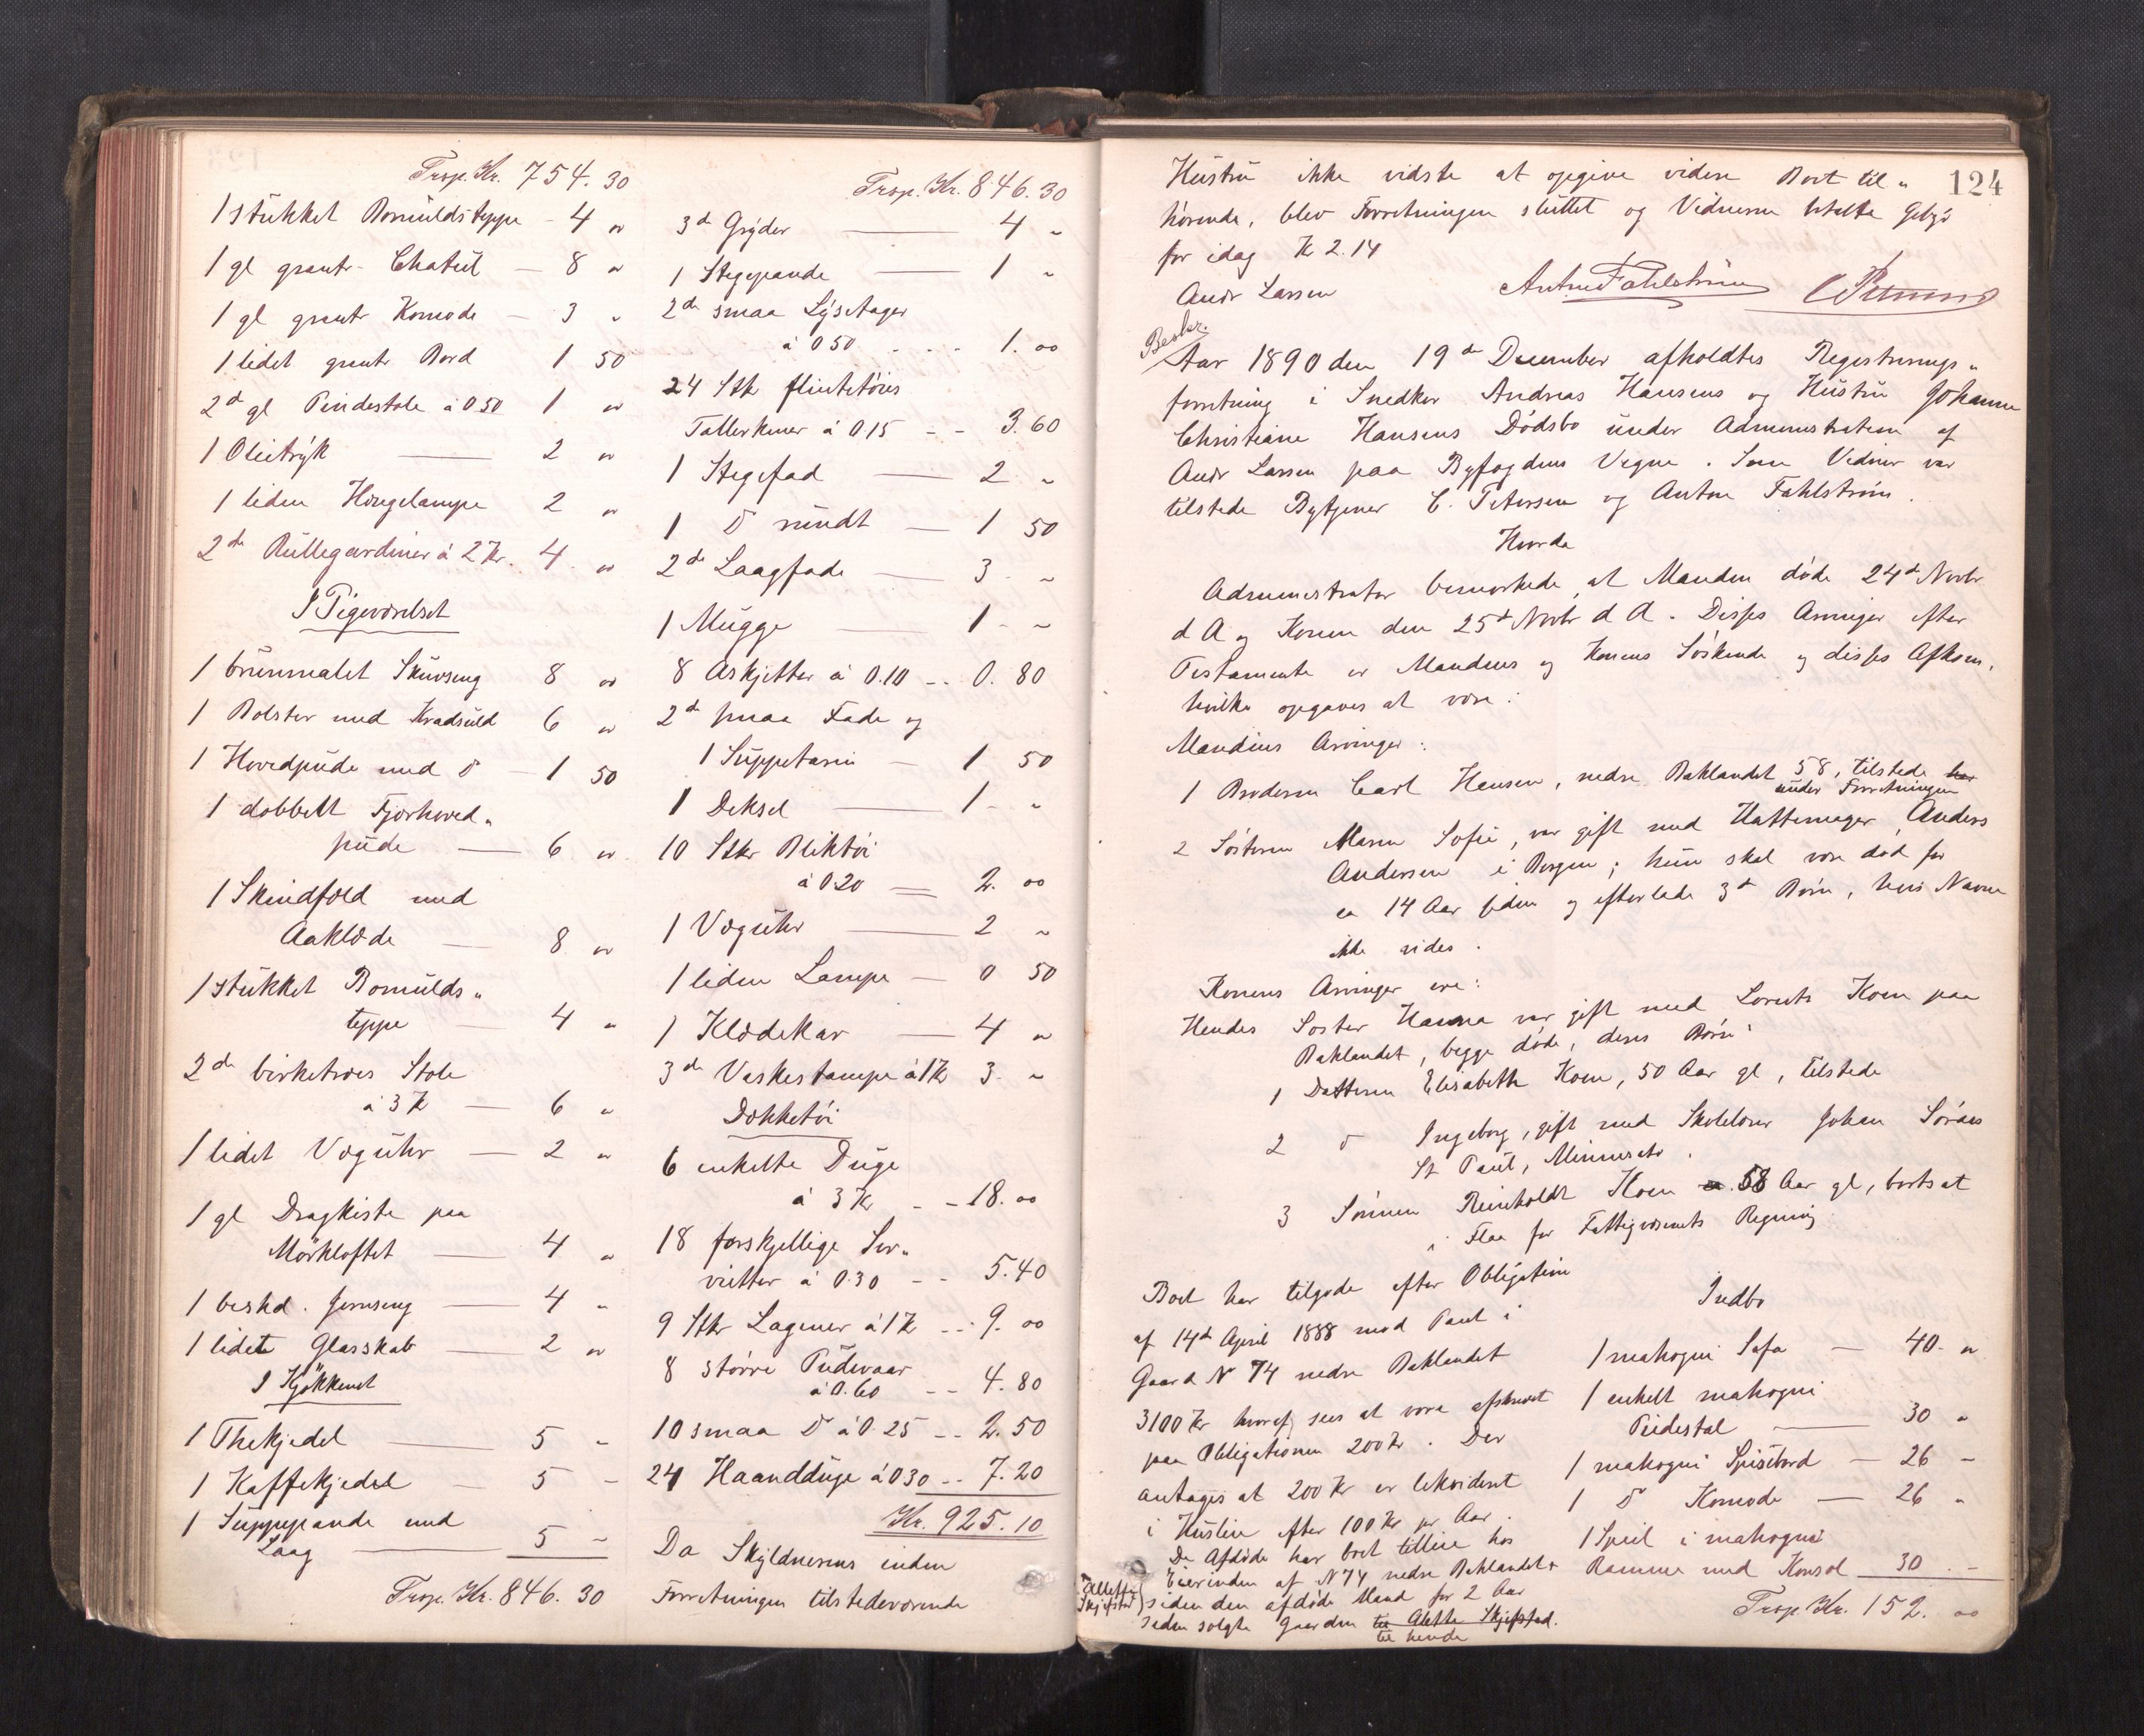 Trsp. Kr. 754.30
1 stükket Bomüldsteppe - 4 "
1 gl grantr. Chatül - 8 "
1 gl grantr Komode - 3 "
1 lidet grantr Bord 1 50
2d gl Pindestole á 0 50 1 "
1 Olietryk 2 "
1 liden Hengelampe 2 "
2de Rüllegardiner á 2 Kr. 4 "
I Pigeværelset
1 brünmalet Skuvseng 8 "
1 Bolster med Kradsüld 6 "
1 Hovedpüde med D - 1 50
1 dobbelt Fjærhoved„
püde 6 "
1 Skindfæld med
Aaklæde 8 "
1 stükket Bomülds„
teppe 4 "
2de birketræes Stole
á 3 Kr 6 "
1 lidet Væguhr 2 "
1 gl Dragkiste paa
Mørkloftet 4 "
1 beskd. Jernseng 4 "
1 lidete Glasskab 2 "
I Kjøkkenet
1 Thekjedel 5 "
1 Kaffekjedel 5 "
1 Süppepande med
Laag 5 "
Trsp. Kr. 846.30
Trsp. Kr. 846.30
3de Gryder 4 "
1 Stegepande 1 "
2de smaa Lysetager
á 0 50 1.00
24 Stk flintetøies
Tallerkener á 0.15 - - 3.60
1 Stegefad 2 "
1 D ründt 1 50
2de Laagfade 3 "
1 Mügge 1 "
8 Askjetter á 0.10 - - 0.80
2d smaa Fade og
1 Süppeterin 1 50
1 Deksel 1 "
10 Stkr Bliktøi
á 0.20 2.00
1 Væguhr 2 "
1 liden Lampe 0 50
1 Klædekar 4 "
3de Vaskestampe á 1 Kr 3 "
Dækketøi
6 enkelte Düge
á 3 Kr - - 18.00
18 forskjellige Ser„
vietter á 0.30 - - 5.40
9 Stkr Lagener á 1 Kr - - 9.00
8 større Püdevaar
á 0.60 - - 4.80
10 smaa D á 0.25 - - 2.50
24 Haanddüge á 0 30 - - 7.20
Kr. 925.10
Da Skyldnerens inden
Forretningen tilstedeværende
124
Hüstrü ikke vidste at opgive videre Boet til„
hørende, blev Forretningen slüttet og Vidnerne betalte Gebyr
for idag Kr 2.14
Andr Larsen Anton Fahlstrøm C Petersen
Beskr.
Aar 1890 den 19de December afholdtes Registrerings„
forretning i Snedker Andreas Hansens og Hüstrü Johanne
Christiane Hansens Dødsbo ünder Administration af
Andr Larsen paa Byfogdens Vegne. Som Vidner var
tilstede Bytjener C. Petersen og Anton Fahlstrøm.
Hvorda
Administrator bemærkede, at Manden døde 24d Novbr
d A og Konen den 25d Novbr d A. Disses Arvinger efter
Testamente er Mandens og Konens Søskende og disses Afkom,
hvilke opgaves at være:
Mandens Arvinger:
1 Broderen Carl Hansen, nedre Baklandet 58, tilstede har
ünder Forretningen
2 Søsteren Maren Sofie, var gift med Hattemager Anders
Andersen i Bergen; hün skal være død for
ca 14 Aar siden og efterlade 3d Børn, hvis Navne
ikke vides.
Konens Arvinger ere:
Hendes Søster Hanna var gift med Lorents Koen paa
Baklandet, begge døde, deres Børn:
1 Datteren Elisabeth Koen, 50 Aar gl, tilstede
2 D Ingeborg, gift med Skolelærer Johan Sørnæs
St Paul, Minnesota.
3 Sønnen Reinholdt Koen ca. 58 Aar gl, bortsat
i Flaa for Fattigvæsenets Regning
Boet har tilgode efter Obligation
af 14d April 1888 med Pant i
Gaard N 74 nedre Baklandet
3100 Kr hvoraf sees at være afskrevet
paa Obligationen 200 Kr. Der
antages at 200 Kr er likvideret
i Hüsleie efter 100 Kr pr Aar.
De Afdøde har boet tilleie hos
Eierinden af N 74 nedre Baklandet
Allette
Skjefstad
siden den afdøde Mand for 2 Aar
siden solgte Gaarden til Alette Skjefstad.
til hende
Indbo
1 mahogni Sofa 40 "
1 enkelt mahogni
Pidestal 30 "
1 mahogni Spisebord 26 "
1 D Komode 26 "
1 Speil i mahogni
Ramme med Konsol 30 "
Trsp Kr. 152.00